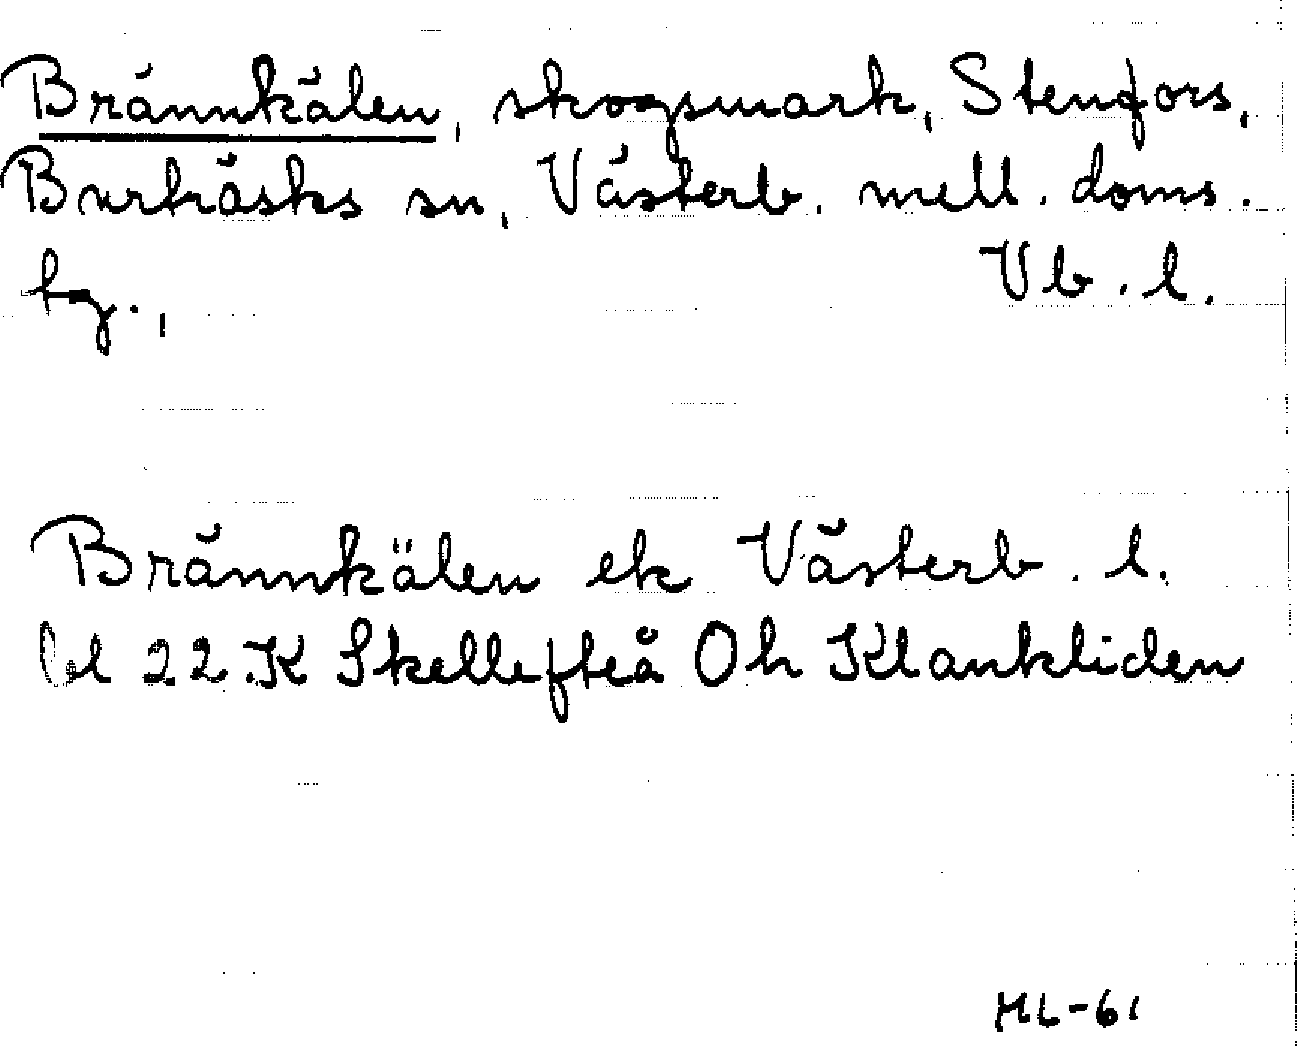 Brännkälen, skogsmark, Stenfors,
Burträsks sn, Västerb. mell. doms.
hg., Vb. l.
Brännkälen ek Västerb. l.
bl 22.K Skellefteå Oh Klankliden
HL-61